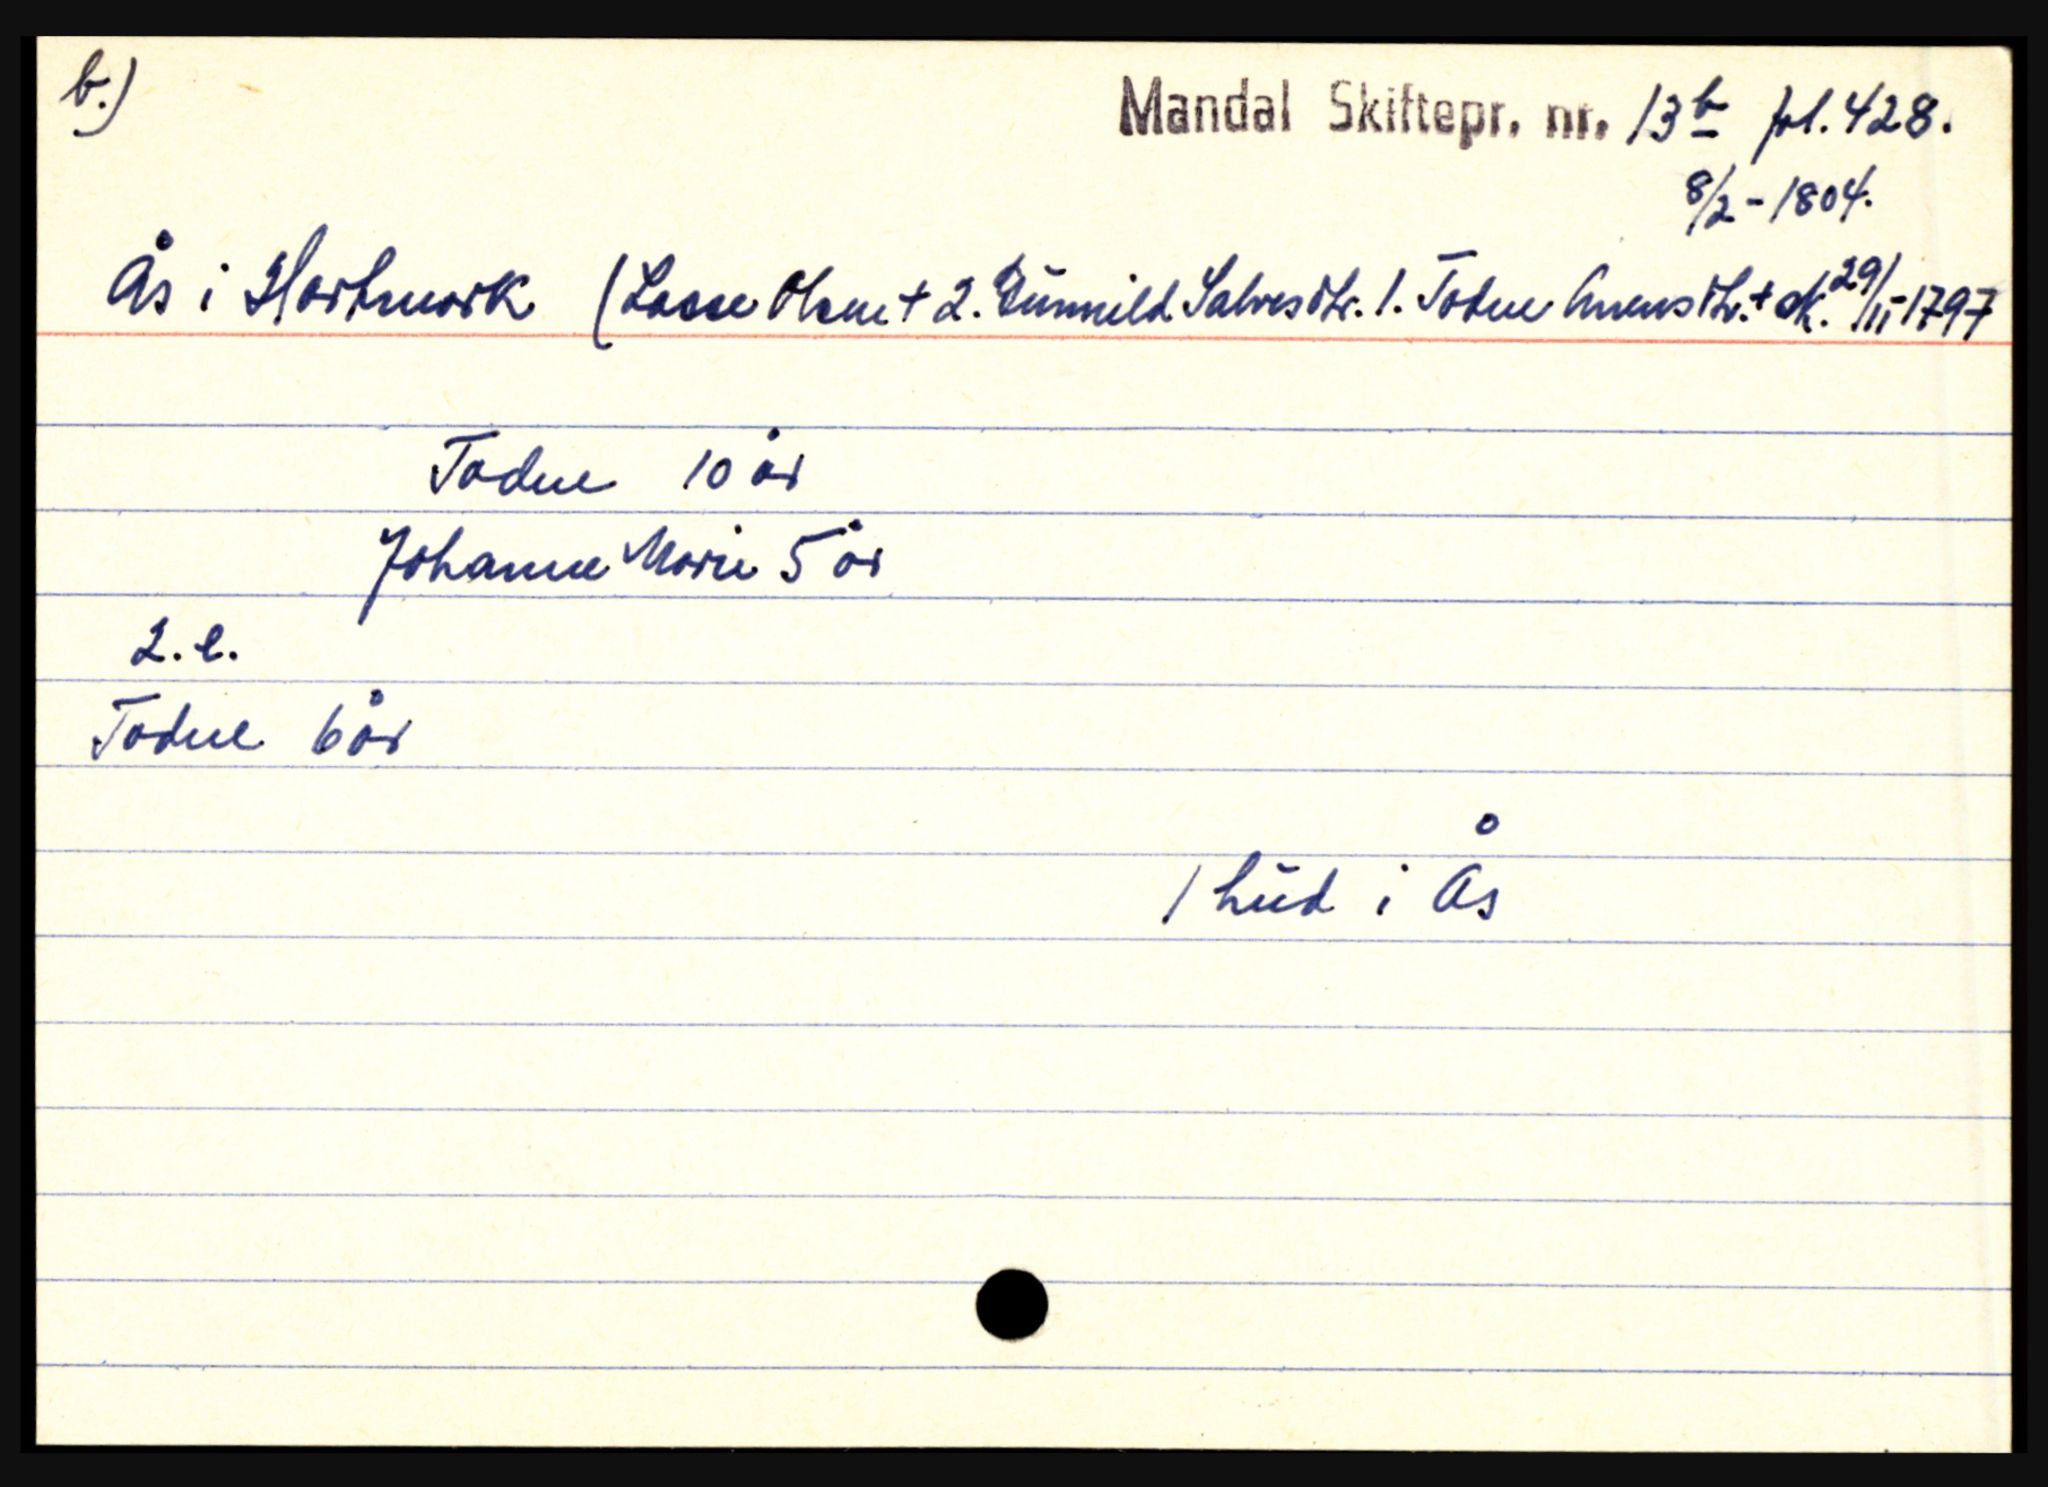 b.)
Mandal Skiftepr. nr. 13b fol. 428.
8/2 - 1804.
Ås i Hartmork (Lasse Olsen + 2. Gŭnnild Salvesdtr. 1. Todne Anensdtr. + sk. 29/11-1797
Todne 10 år
Johanne Marie 5 år
2. e.
Todne 6 år
1 hŭd i Ås